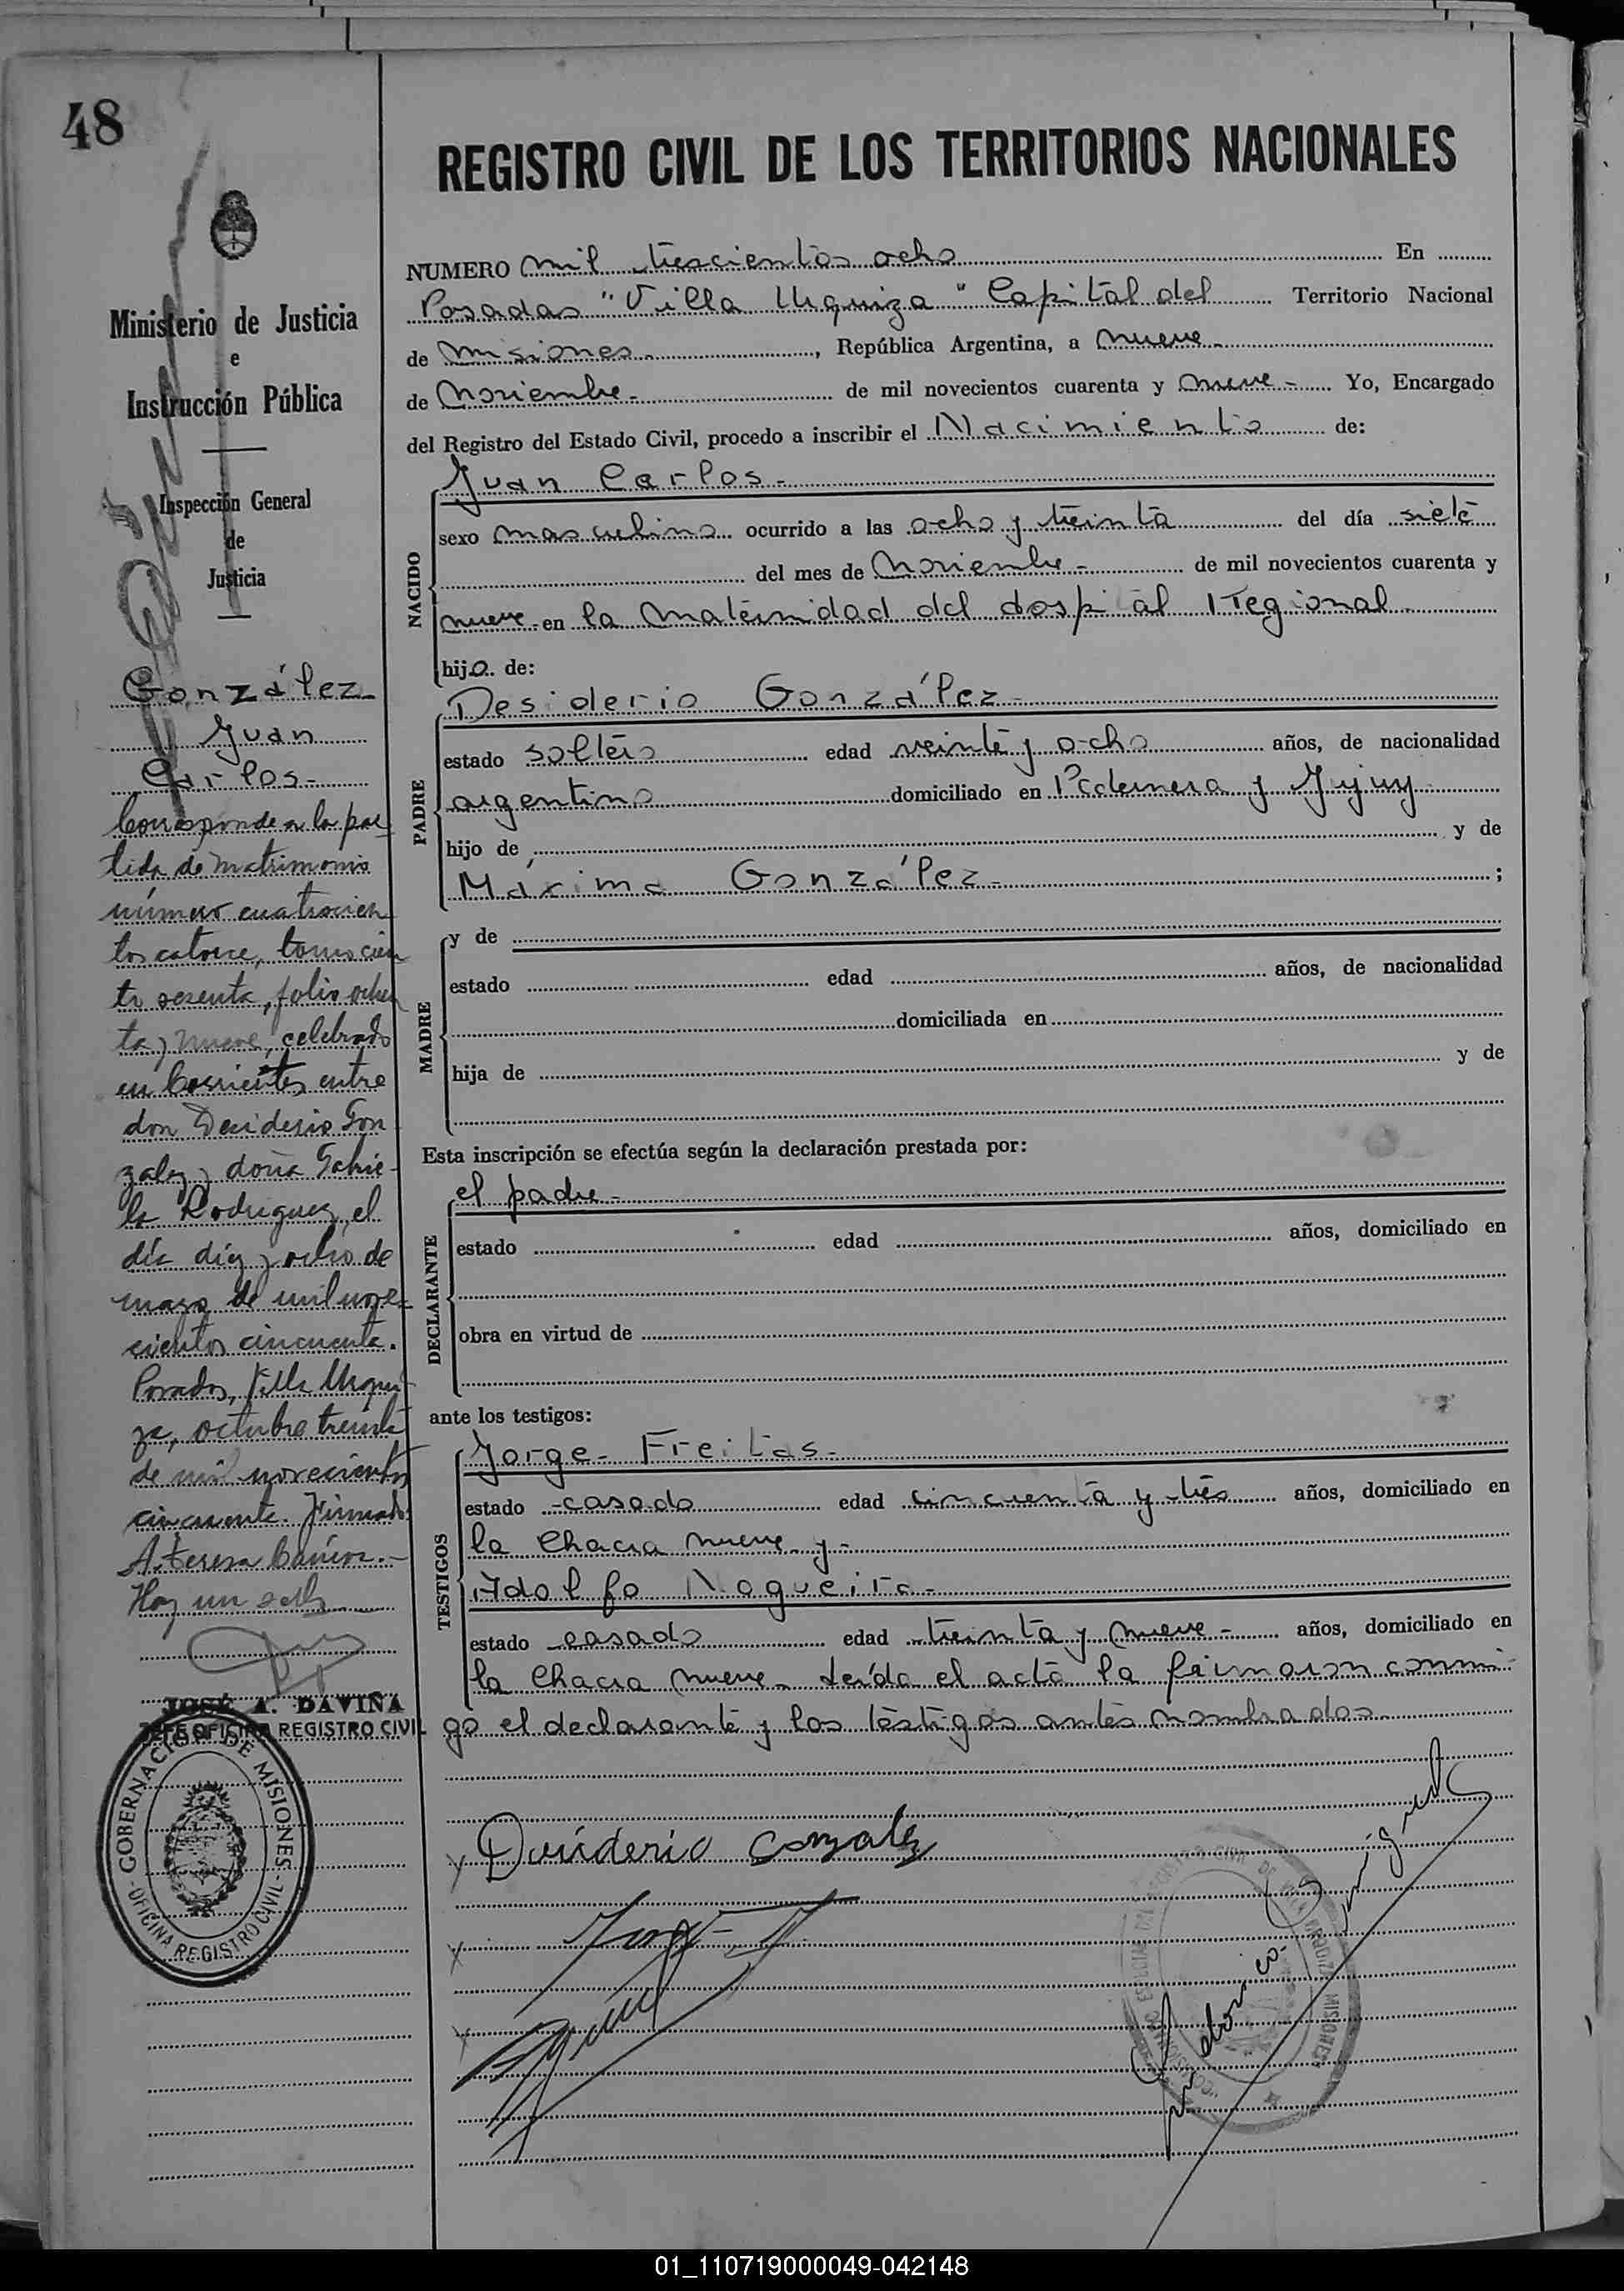 48
REGISTRO CIVIL DE LOS TERRITORIOS NACIONALES
Ministerio de Justicia
e
Instrucción Pública
Inspección General
de
Justicia
González
Juan
Carlos-
Corresponde a la par
tida de matrimonio
número cuatrocien
tos catorce, tomo cien
to sesenta, folio ochen
ta y nueve, celebrado
en Corrientes entre
don Desiderio Gon
zalez y doña Gabrie-
la Rodriguez, el
día diez y ocho de
marzo de mil nove-
cientos cincuenta.
Posadas, Villa Urqui
za, octubre treinta
de mil novecientos
cincuenta. Firmado:
A. Teresa
Hay un sello
JOSÉ A. DAVIÑA
JEFE OFICINA REGISTRO CIVIL
GOBERNACION DE MISIONES
- OFICINA REGISTRO CIVIL -
NUMERO mil trescientos ocho En
Posadas "Villa Urquiza" Capital del Territorio Nacional
de Misiones-, República Argentina, a nueve-
de Noviembre- de mil novecientos cuarenta y nueve- Yo, Encargado
del Registro del Estado Civil, procedo a inscribir el Nacimiento de:
NACIDO
Juan Carlos-
sexo masculino ocurrido a las ocho y treinta del día siete
del mes de Noviembre- de mil novecientos cuarenta y
nueve- en la Maternidad del Hospital Regional
hijo de:
PADRE
Desiderio González-
estado soltero edad veinte y ocho años, de nacionalidad
argentino domiciliado en Pedernera y Jujuy
hijo de y de
Máxima González- ;
MADRE
y de
estado edad años, de nacionalidad
domiciliada en
hija de y de
Esta inscripción se efectúa según la declaración prestada por:
DECLARANTE
el padre-
estado edad años, domiciliado en
obra en virtud de
ante los testigos:
TESTIGOS
Jorge- Freitas-
estado -casado edad cincuenta y tres años, domiciliado en
la Chacra nueve y-
Adolfo Nogueira-
estado -casado edad treinta y nueve- años, domiciliado en
la Chacra nueve- Leída el acta la firmaron conmi-
go el declarante y los testigos antes nombrados
Desiderio Gonzalez
01_110719000049-042148